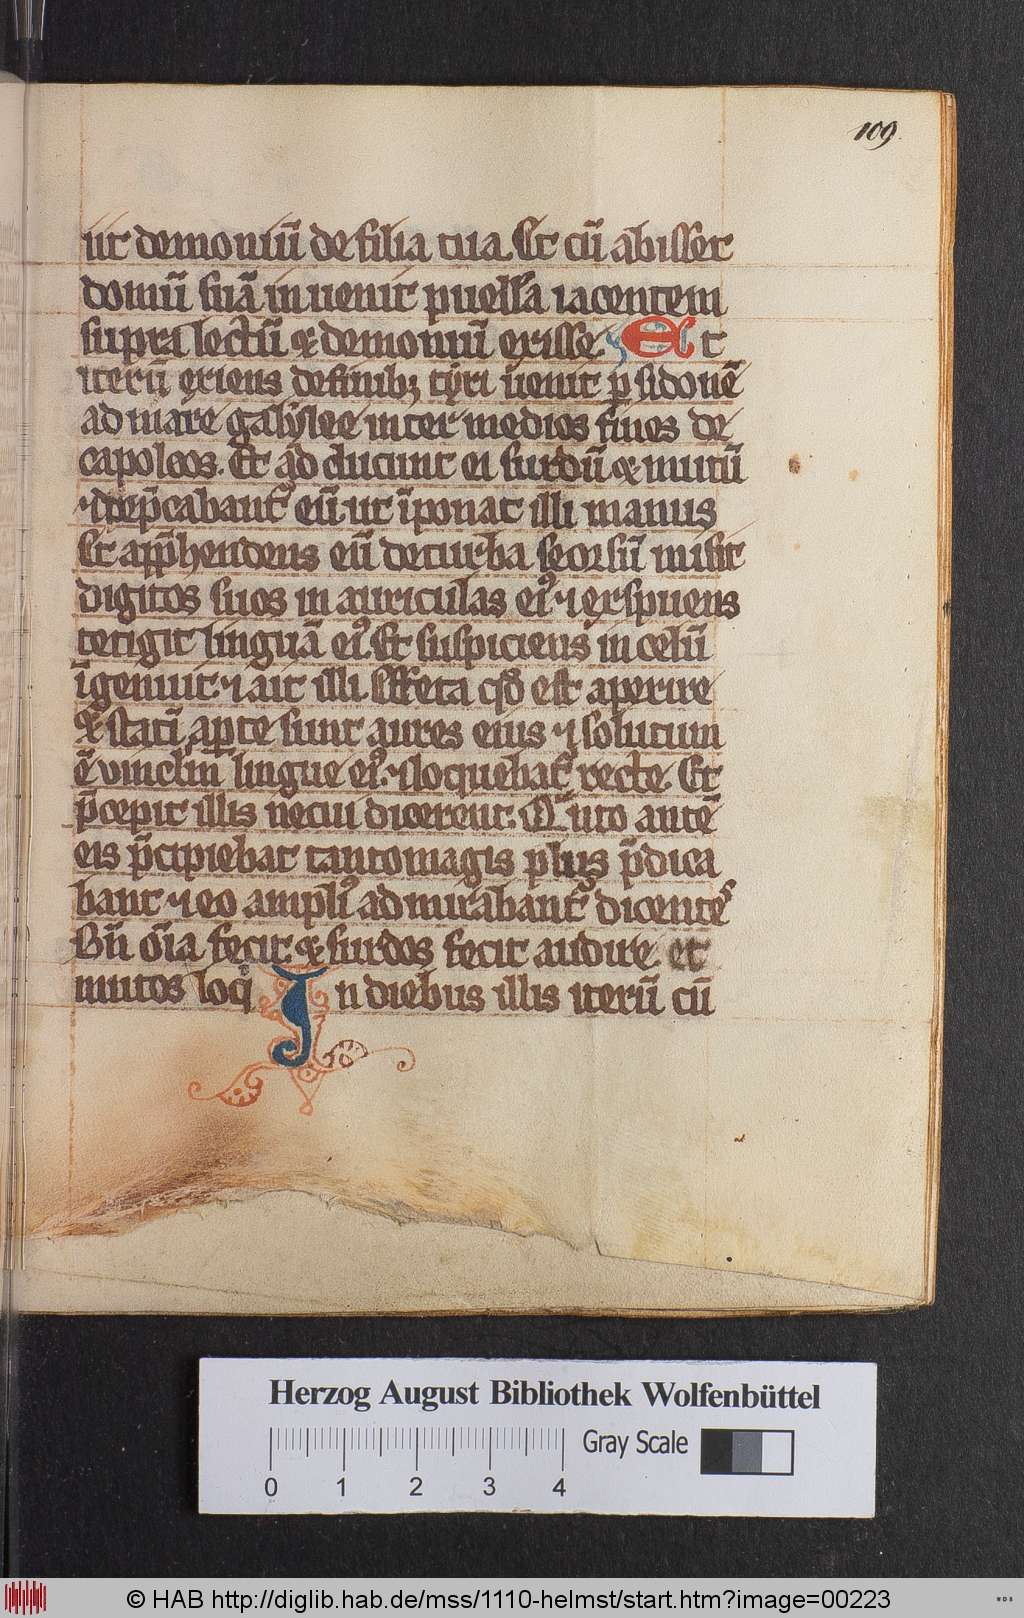 109.
iit demoniũ de filia tua. Et cũ abisset
domũ suã inuenit puellã iacentem
supra lectũ ⁊ demoniũ exisse. Et
iterũ exiens de finibꝫ tyri uenit p̱ sidonẽ
ad mare galylee inter medios fines de
capoleos. Et ad ducunt ei surdũ ⁊ mutũ
⁊ dep̃cabant᷑ eũ ut ĩponat illi manus
Et app̃hendens eũ de turba seorsũ misit
digitos suos in auriculas eiꝰ ⁊ exspuens
tetigit linguã eiꝰ. Et suspiciens in celũ
ĩgemuit. ⁊ ait illi. Effeta qd̃ est aperire
⁊ statĩ ap̱te sunt aures eius ⁊ solutum
ẽ vinclm̃ lingue eiꝰ. ⁊ loquebat᷑ recte. Et
p̃cepit illis ne cui dicerent. Q̃nto antẽ
eis p̃cipiebat tanto magis plus p̃dica
bant ⁊ eo ampliꝰ ad mirabant᷑ dicentes
Bñ oĩa fecit. ⁊ surdos fecit audire. et
mutos loqi In diebus illis iterũ cũ
Herzog August Bibliothek Wolfenbüttel
Gray Scale
0 1 2 3 4
© HAB http://diglib.hab.de/mss/1110-helmst/start.htm?image=00223